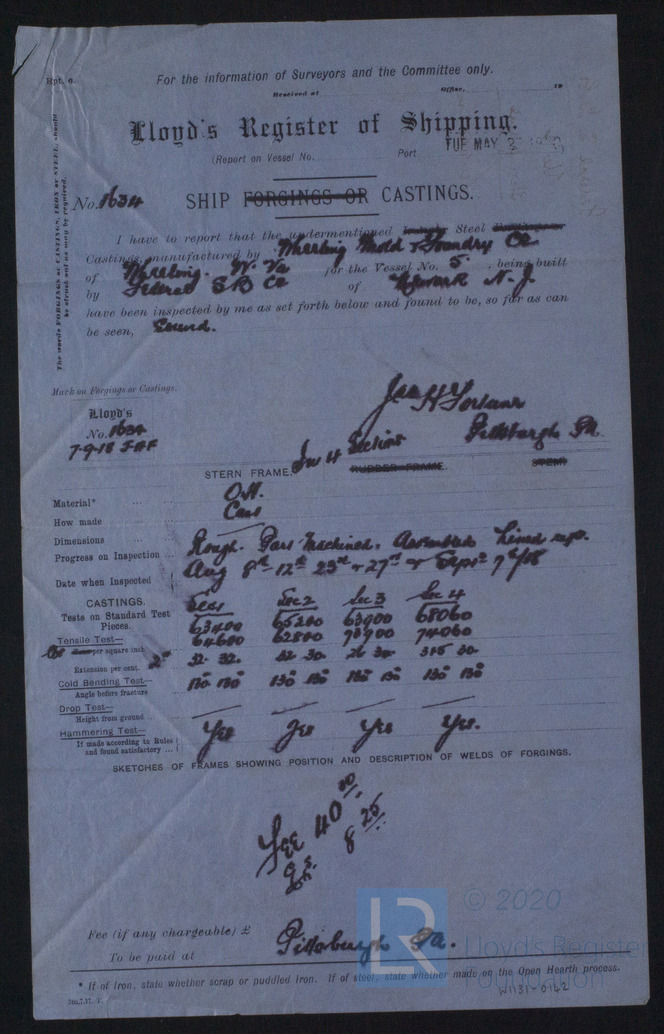 Rpt. 6.
For the information of Surveyors and the Committee only.
Received at Office, 19
Lloyd's Register of Shipping.
(Report on Vessel No. Port TUE MAY
No. 1634 SHIP FORGINGS OR CASTINGS.
The words FORGINGS or CASTINGS, IRON or STEEL, should be struck out as may be required.
I have to report that the undermentioned Steel
Castings, manufactured by Wheeling Mold & Foundry Co
of Wheeling. W. Va for the Vessel No. 5. , being built
by Federal S B Co of Newark N. J.
have been inspected by me as set forth below and found to be, so far as can
be seen, Sound.
Mark on Forgings or Castings.
Lloyd's
No. 1634
7-9-18
Pittsburgh Pa.
STERN FRAME. In 4 Sections RUDDER FRAME. STEM.
Material* O.H.
How made Cast
Dimensions
Progress on Inspection Rough. Part Machined. Assembled Lined up.
Date when Inspected Aug 8th - 12th 23rd & 27th & Sept 7th/18
CASTINGS.
Tests on Standard Test Pieces. Sec 1 Sec 2 Sec 3 Sec 4
63400 65200 63900 68060
Tensile Test— 64600 62800 70900 74060
per square inch
Extension per cent. 2" 32. 32. 32 30. 26 30. 315 30.
Cold Bending Test—
Angle before fracture 120° 120° 120° 120° 120° 120° 120° 120°
Drop Test—
Height from ground
Hammering Test—
If made according to Rules and found satisfactory ... Yes Yes Yes Yes.
SKETCHES OF FRAMES SHOWING POSITION AND DESCRIPTION OF WELDS OF FORGINGS.
Fee 40 00/.
8 25/.
Fee (if any chargeable) £
To be paid at Pittsburgh Pa.
* If of iron, state whether scrap or puddled iron. If of steel, state whether made on the Open Hearth process.
LR
© 2020
Lloyd's Register
Foundation
W1131-0142